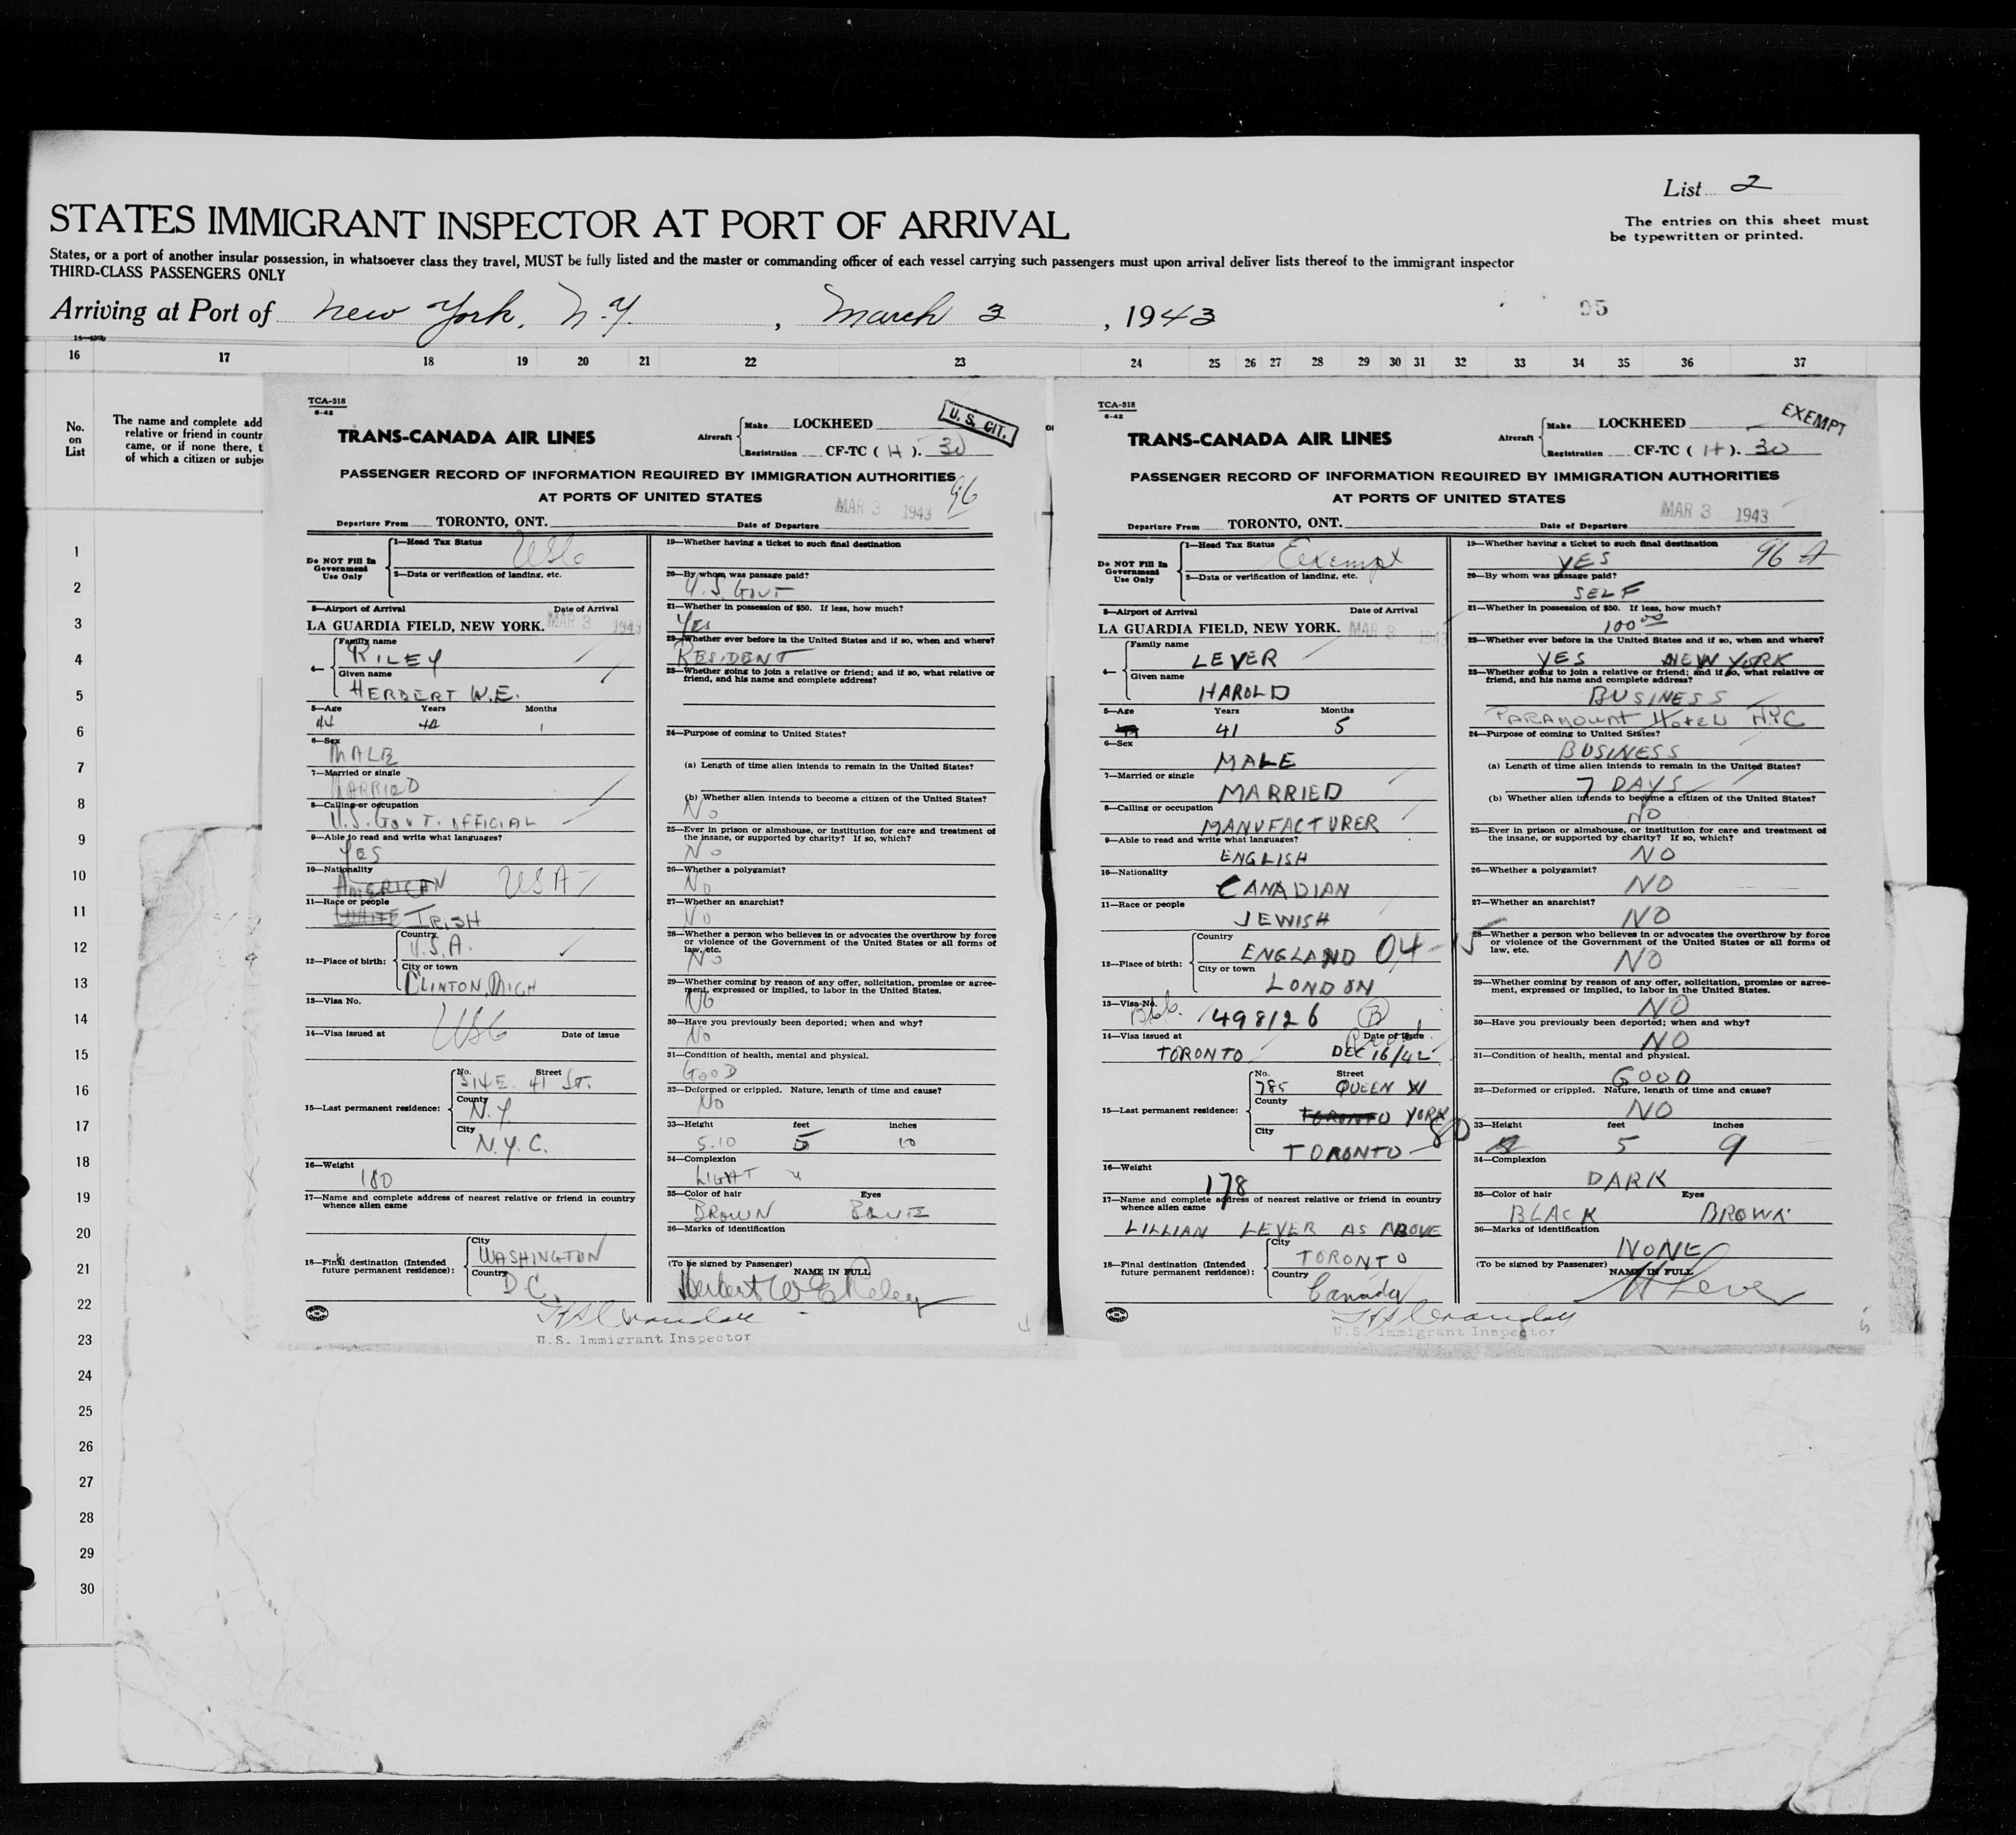 List 2
STATES IMMIGRANT INSPECTOR AT PORT OF ARRIVAL
The entries on this sheet must
be typewritten or printed.
States, or a port of another insular possession, in whatsoever class they travel, MUST be fully listed and the master or commanding officer of each vessel carrying such passengers must upon arrival deliver lists thereof to the immigrant inspector
THIRD-CLASS PASSENGERS ONLY
Arriving at Port of New York, N.Y. , March 3 , 1943
95
16 17 18 19 20 21 22 23 24 25 26 27 28 29 30 31 32 33 34 35 36 37
No.
on
List
The name and complete add
relative or friend in countr
came, or if none there, t
of which a citizen or subje
1
2
3
4
5
6
7
8
9
10
11
12
13
14
15
16
17
18
19
20
21
22
23
24
25
26
27
28
29
30
TCA-518
6-42
TRANS-CANADA AIR LINES
Aircraft
Make LOCKHEED
Registration CF-TC ( H ). 30
U. S. CIT.
PASSENGER RECORD OF INFORMATION REQUIRED BY IMMIGRATION AUTHORITIES
AT PORTS OF UNITED STATES
96
MAR 3 1943
Departure From TORONTO, ONT. Date of Departure
Do NOT Fill In
Government
Use Only
1—Head Tax Status USC
2—Data or verification of landing, etc.
3—Airport of Arrival Date of Arrival
LA GUARDIA FIELD, NEW YORK. MAR 3 1943
4—
Family name
RILEY
Given name
HERBERT W.E.
5—Age Years Months
44 44 1
6—Sex
MALE
7—Married or single
MARRIED
8—Calling or occupation
U.S. GOVT. OFFICIAL
9—Able to read and write what languages?
YES
10—Nationality
AMERICAN USA
11—Race or people
WHITE IRISH
12—Place of birth:
Country
U.S.A.
City or town
CLINTON, MICH
13—Visa No.
USC
14—Visa issued at Date of issue
15—Last permanent residence:
No. Street
314 E. 41 ST.
County
N.Y.
City
N.Y.C.
16—Weight
180
17—Name and complete address of nearest relative or friend in country
whence alien came
18—Final destination (Intended
future permanent residence):
City
WASHINGTON
Country
D.C.
19—Whether having a ticket to such final destination
20—By whom was passage paid?
U.S. GOVT
21—Whether in possession of $50. If less, how much?
YES
22—Whether ever before in the United States and if so, when and where?
RESIDENT
23—Whether going to join a relative or friend; and if so, what relative or
friend, and his name and complete address?
24—Purpose of coming to United States?
(a) Length of time alien intends to remain in the United States?
(b) Whether alien intends to become a citizen of the United States?
NO
25—Ever in prison or almshouse, or institution for care and treatment of
the insane, or supported by charity? If so, which?
NO
26—Whether a polygamist?
NO
27—Whether an anarchist?
NO
28—Whether a person who believes in or advocates the overthrow by force
or violence of the Government of the United States or all forms of
law, etc.
NO
29—Whether coming by reason of any offer, solicitation, promise or agree-
ment, expressed or implied, to labor in the United States.
NO
30—Have you previously been deported; when and why?
NO
31—Condition of health, mental and physical.
GOOD
32—Deformed or crippled. Nature, length of time and cause?
NO
33—Height feet inches
5.10 5 10
34—Complexion
LIGHT
35—Color of hair Eyes
BROWN BLUE
36—Marks of identification
(To be signed by Passenger) NAME IN FULL
Herbert W E Riley
U.S. Immigrant Inspector
4
TCA-518
6-42
TRANS-CANADA AIR LINES
Aircraft
Make LOCKHEED
Registration CF-TC ( H ). 30
EXEMPT
PASSENGER RECORD OF INFORMATION REQUIRED BY IMMIGRATION AUTHORITIES
AT PORTS OF UNITED STATES
MAR 3 1943
Departure From TORONTO, ONT. Date of Departure
Do NOT Fill In
Government
Use Only
1—Head Tax Status Exempt
2—Data or verification of landing, etc.
3—Airport of Arrival Date of Arrival
LA GUARDIA FIELD, NEW YORK. MAR 3 1943
4—
Family name
LEVER
Given name
HAROLD
5—Age Years Months
41 5
6—Sex
MALE
7—Married or single
MARRIED
8—Calling or occupation
MANUFACTURER
9—Able to read and write what languages?
ENGLISH
10—Nationality
CANADIAN
11—Race or people
JEWISH
12—Place of birth:
Country
ENGLAND 04-15
City or town
LONDON
13—Visa No.
498126 B
14—Visa issued at Date of issue
TORONTO DEC 16/42
15—Last permanent residence:
No. Street
785 QUEEN W
County
TORONTO YORK
City
TORONTO 80
16—Weight
178
17—Name and complete address of nearest relative or friend in country
whence alien came
LILLIAN LEVER AS ABOVE
18—Final destination (Intended
future permanent residence):
City
TORONTO
Country
Canada
19—Whether having a ticket to such final destination
YES 96
20—By whom was passage paid?
SELF
21—Whether in possession of $50. If less, how much?
100 00
22—Whether ever before in the United States and if so, when and where?
YES NEW YORK
23—Whether going to join a relative or friend; and if so, what relative or
friend, and his name and complete address?
BUSINESS
PARAMOUNT HOTEL NYC
24—Purpose of coming to United States?
BUSINESS
(a) Length of time alien intends to remain in the United States?
7 DAYS
(b) Whether alien intends to become a citizen of the United States?
NO
25—Ever in prison or almshouse, or institution for care and treatment of
the insane, or supported by charity? If so, which?
NO
26—Whether a polygamist?
NO
27—Whether an anarchist?
NO
28—Whether a person who believes in or advocates the overthrow by force
or violence of the Government of the United States or all forms of
law, etc.
NO
29—Whether coming by reason of any offer, solicitation, promise or agree-
ment, expressed or implied, to labor in the United States.
NO
30—Have you previously been deported; when and why?
NO
31—Condition of health, mental and physical.
GOOD
32—Deformed or crippled. Nature, length of time and cause?
NO
33—Height feet inches
5 9
34—Complexion
DARK
35—Color of hair Eyes
BLACK BROWN
36—Marks of identification
NONE
(To be signed by Passenger) NAME IN FULL
H Lever
U.S. Immigrant Inspector
5